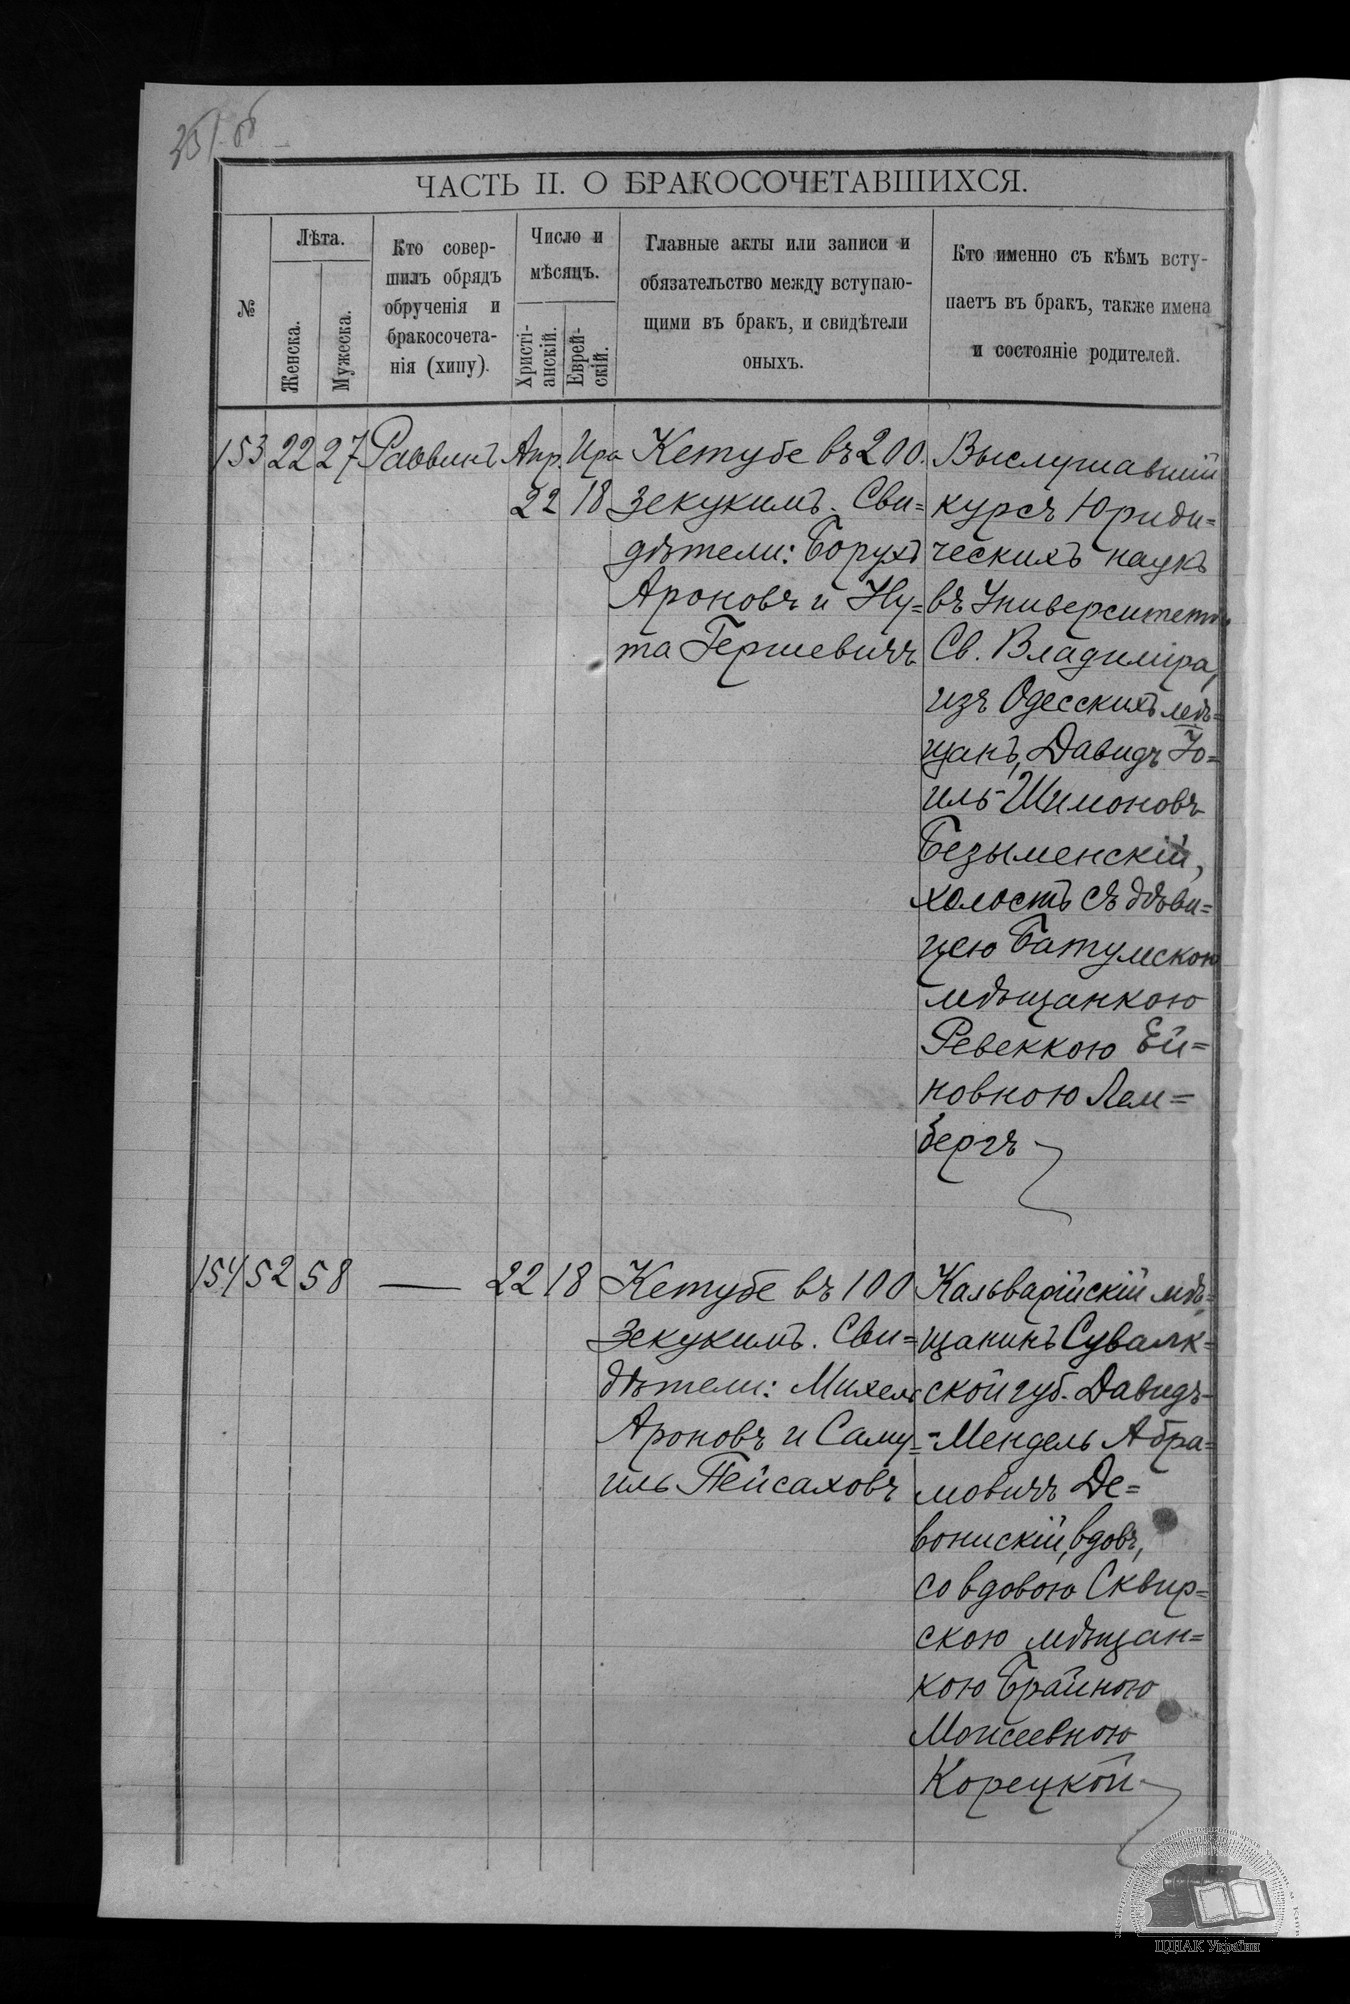 ЧАСТЬ II. О БРАКОСОЧЕТАВШИХСЯ.
№
Лѣта.
Женска.
Мужеска.
Кто совер-
шилъ обрядъ
обрученія и
бракосочета-
нія (хипу).
Число и
мѣсяцъ.
Христі-
анскій.
Еврей-
скій.
Главные акты или записи и
обязательство между вступаю-
щими въ бракъ, и свидѣтели
оныхъ.
Кто именно съ кѣмъ всту-
паетъ въ бракъ, также имена
и состояніе родителей.
153 22 27 Раввинъ Апр. Ира
22 18
Кетубе въ 200.
зекукимъ. Сви=
дѣтели: Борухъ
Ароновъ и Ну=
та Гершевичъ
Выслушавшій
курсъ Юриди=
ческихъ наукъ
въ Университетѣ
Св. Владиміра,
изъ Одесскихъ мѣ=
щанъ, Давидъ Іо=
иль-Шимоновъ
Безыменскій,
холостъ съ дѣви=
цею Батумскою
мѣщанкою
Ревеккою Ей=
новною Лем=
бергъ
154 52 58 — 22 18
Кетубе въ 100
зекукимъ. Сви=
дѣтели: Михель
Ароновъ и Саму=
иль Пейсаховъ
Кальварійскій мѣ=
щанинъ Сувалк=
ской губ. Давидъ-
-Мендель Абра=
мовичъ Де=
вонискій, вдовъ,
со вдовою Сквир=
скою мѣщан=
кою Брайною
Моисеевною
Корецкой
ЦДІАК України